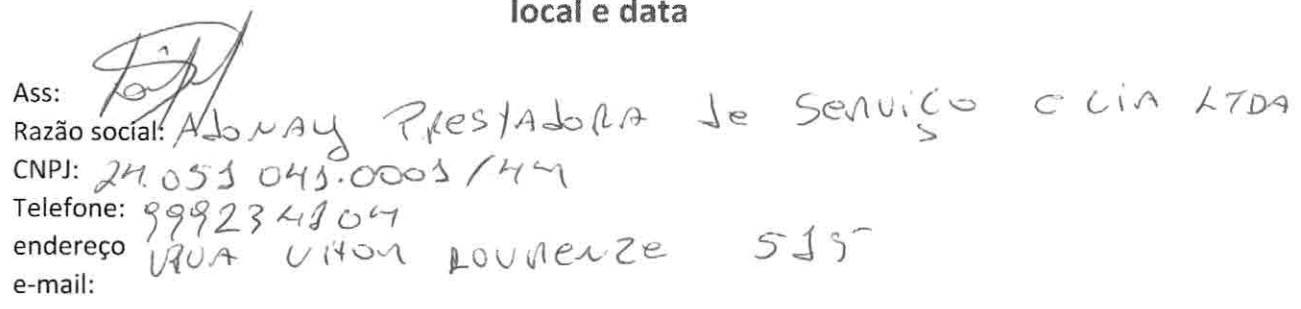 local e data
Ass:
Razão social: Adonay Prestadora de Serviço e Cia LTDA
CNPJ: 24.051 041.0001/44
Telefone: 999234104
endereço RUA Vitor Lourenze 515
e-mail: